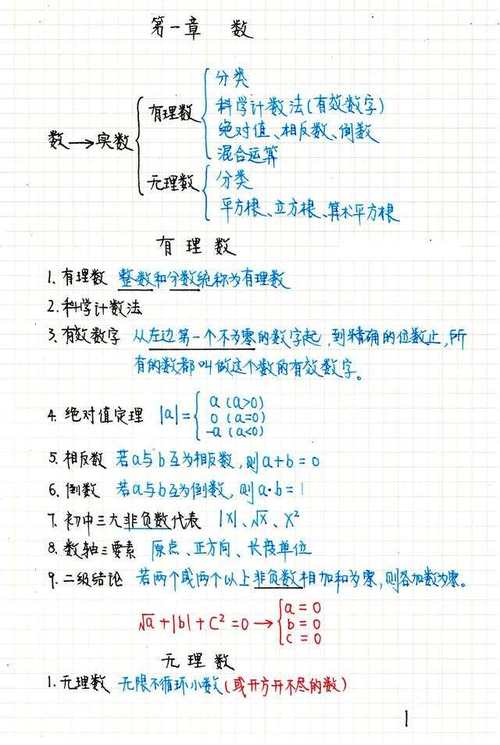 第一章 数
数→实数
有理数
分类
科学计数法(有效数字)
绝对值、相反数、倒数
混合运算
无理数
分类
平方根、立方根、算术平方根
有理数
1. 有理数 整数和分数统称为有理数
2. 科学计数法
3. 有效数字 从左边第一个不为零的数字起,到精确的位数止,所
有的数都叫做这个数的有效数字。
4. 绝对值定理 |a|={ a (a>0)
0 (a=0)
-a (a<0)
5. 相反数 若a与b互为相反数,则a+b=0
6. 倒数 若a与b互为倒数,则a·b=1
7. 初中三大非负数代表 |X|、√X、X²
8. 数轴三要素 原点、正方向、长度单位
9. 二级结论 若两个或两个以上非负数相加和为零,则各加数为零。
√a+|b|+C²=0→{ a=0
b=0
c=0
无理数
1. 无理数 无限不循环小数(或开方开不尽的数)
1